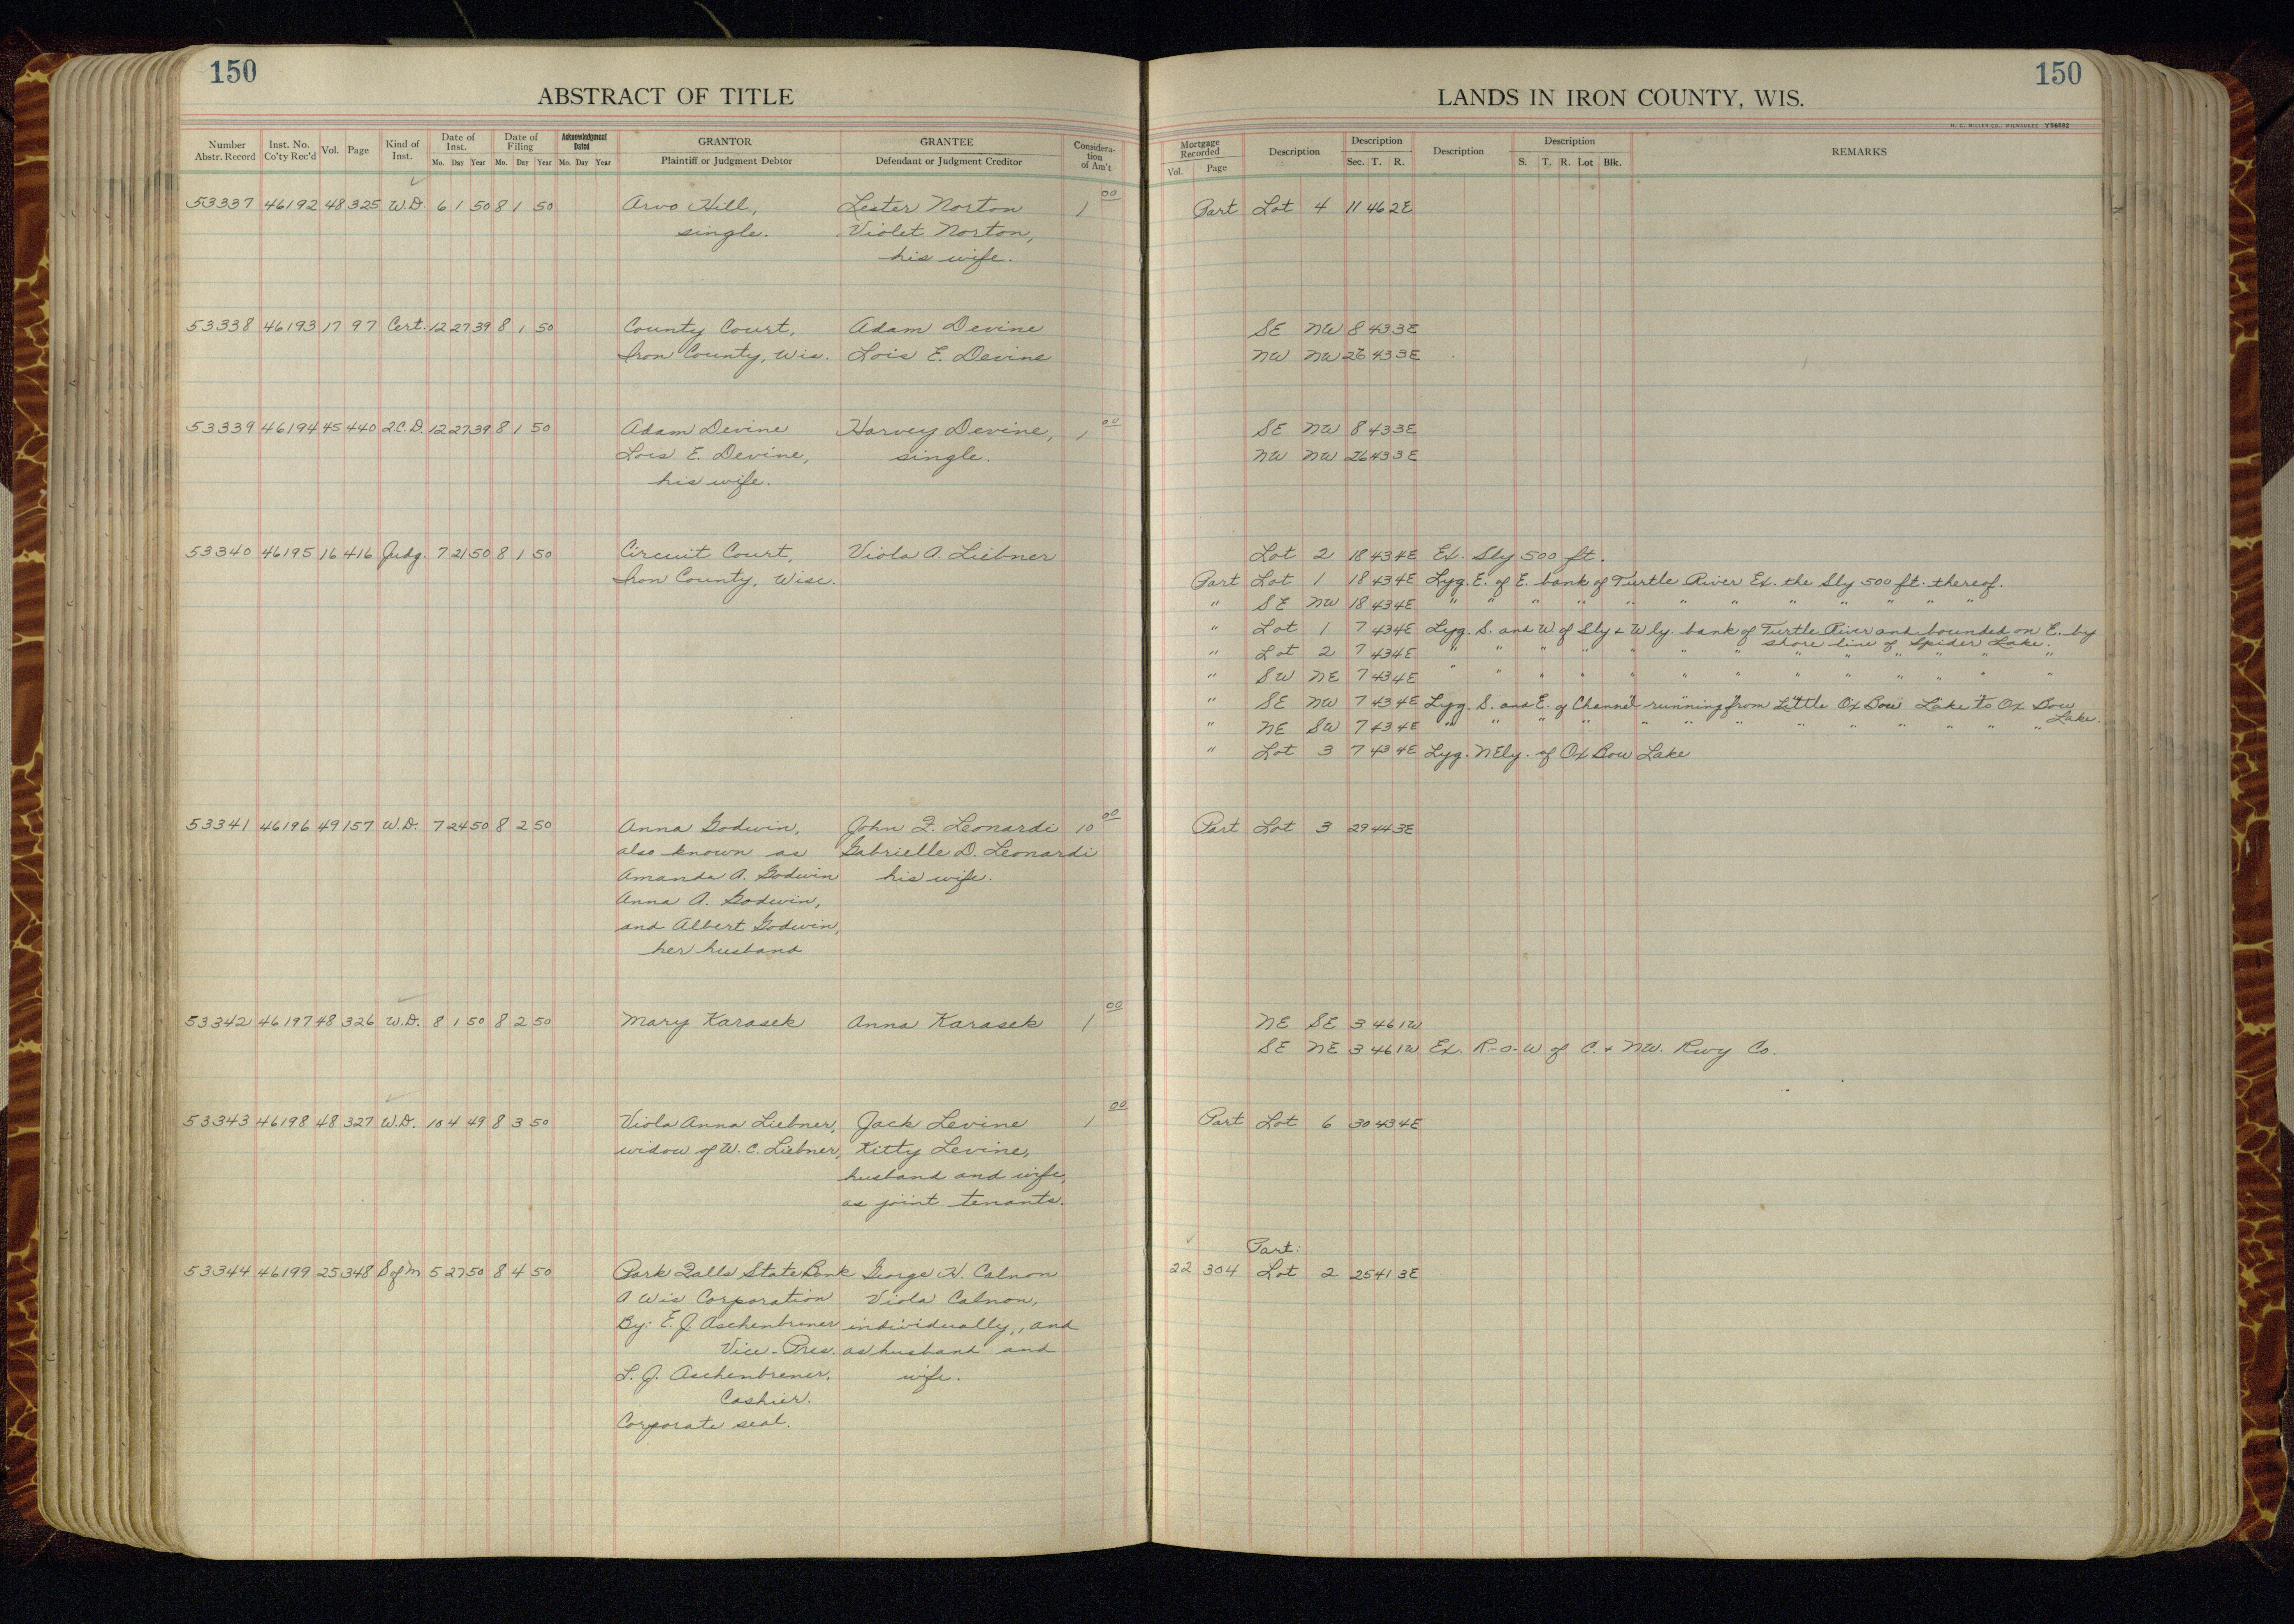 150
ABSTRACT OF TITLE
Number Abstr. Record | Inst. No. Co'ty Rec'd | Vol. | Page | Kind of Inst. | Date of Inst. Mo. Day Year | Date of Filing Mo. Day Year | Acknowledgment Dated Mo. Day Year | GRANTOR Plaintiff or Judgment Debtor | GRANTEE Defendant or Judgment Creditor | Considera-tion of Am't
53337 46192 48 325 W.D. 6 1 50 8 1 50 Arvo Hill, Lester Norton 1 00
single. Violet Norton,
his wife.
53338 46193 17 97 Cert. 12 27 39 8 1 50 County Court, Adam Devine
Iron County, Wis. Lois E. Devine
53339 46194 45 440 2.C.D. 12 27 39 8 1 50 Adam Devine Harvey Devine, 1 00
Lois E. Devine, single.
his wife.
53340 46195 16 416 Judg. 7 21 50 8 1 50 Circuit Court, Viola A. Liebner
Iron County, Wisc.
53341 46196 49 157 W.D. 7 24 50 8 2 50 Anna Godwin, John F. Leonardi 10 00
also known as Gabrielle D. Leonardi
Amanda A. Godwin his wife.
Anna A. Godwin,
and Albert Godwin,
her husband
53342 46197 48 326 W.D. 8 1 50 8 2 50 Mary Karasek Anna Karasek 1 00
53343 46198 48 327 W.D. 10 4 49 8 3 50 Viola Anna Liebner, Jack Levine 1 00
widow of W. C. Liebner, Kitty Levine,
husband and wife,
as joint tenants.
53344 46199 25 348 S of M 5 27 50 8 4 50 Park Falls State Bank George H. Calnon
A Wis Corporation Viola Calnon,
By: E. J. Aschenbrener individually, and
Vice-Pres. as husband and
L. J. Aschenbrener, wife.
Cashier.
Corporate seal.
150
LANDS IN IRON COUNTY, WIS.
H. C. MILLER CO., MILWAUKEE Y56882
Mortgage Recorded Vol. Page | Description | Description Sec. T. R. | Description | Description S. T. R. Lot Blk. | REMARKS
Part Lot 4 11 46 2E
SE NW 8 43 3E
NW NW 26 43 3E
SE NW 8 43 3E
NW NW 26 43 3E
Lot 2 18 43 4E Ex. Sly 500 ft.
Part Lot 1 18 43 4E Lyg. E. of E. bank of Turtle River Ex. the Sly 500 ft. thereof.
" SE NW 18 43 4E " " " " " " " " " " " "
" Lot 1 7 43 4E Lyg. S. and W. of Sly & Wly. bank of Turtle River and bounded on E. by
shore line of Spider Lake.
" Lot 2 7 43 4E " " " " " " " " " " " " "
" SW NE 7 43 4E " " " " " " " " " " " " "
" SE NW 7 43 4E Lyg. S. and E. of Channel running from Little Ox Bow Lake to Ox Bow
Lake.
" NE SW 7 43 4E " " " " " " " " " " " " "
" Lot 3 7 43 4E Lyg. NEly. of Ox Bow Lake
Part Lot 3 29 44 3E
NE SE 3 46 1W
SE NE 3 46 1W Ex. R-o-W of C. & NW. Rwy Co.
Part Lot 6 30 43 4E
Part:
22 304 Lot 2 25 41 3E